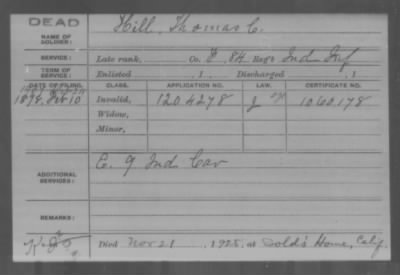 DEAD
NAME OF SOLDIER:
Hill, Thomas C.
SERVICE:
Late rank, Co. E, 84 Reg't Ind Inf
TERM OF SERVICE:
Enlisted , 1 . Discharged , 1
DATE OF FILING. CLASS. APPLICATION NO. LAW. CERTIFICATE NO.
1898. Feb 10 Invalid, 1204278 1060178
Widow,
Minor,
ADDITIONAL SERVICES:
C. 9 Ind Cav
REMARKS:
Died Nov 21, 1925, at Sold's Home, Calif.